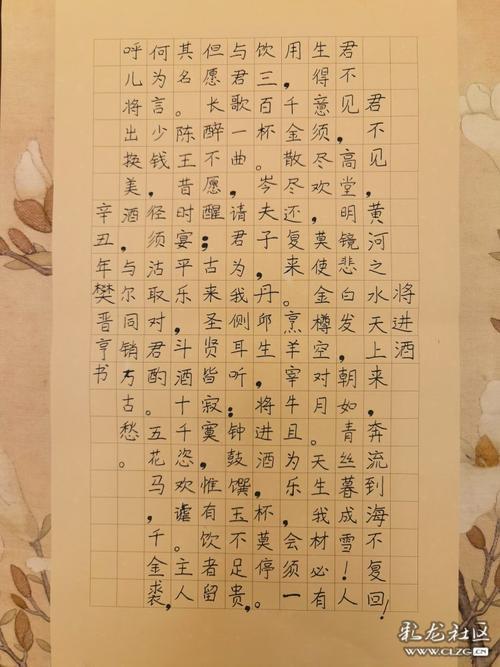 将进酒
君不见,黄河之水天上来,奔流到海不复回!
君不见,高堂明镜悲白发,朝如青丝暮成雪!人
生得意须尽欢,莫使金樽空对月。天生我材必有
用,千金散尽还复来。烹羊宰牛且为乐,会须一
饮三百杯。岑夫子,丹邱生,将进酒,杯莫停。
与君歌一曲,请君为我侧耳听:钟鼓馔玉不足贵,
但愿长醉不愿醒;古来圣贤皆寂寞,惟有饮者留
其名。陈王昔时宴平乐,斗酒十千恣欢谑。主人
何为言少钱,径须沽取对君酌。五花马,千金裘,
呼儿将出换美酒,与尔同销万古愁。
辛丑年樊晋亨书
彩龙社区
WWW.CLZG.CN